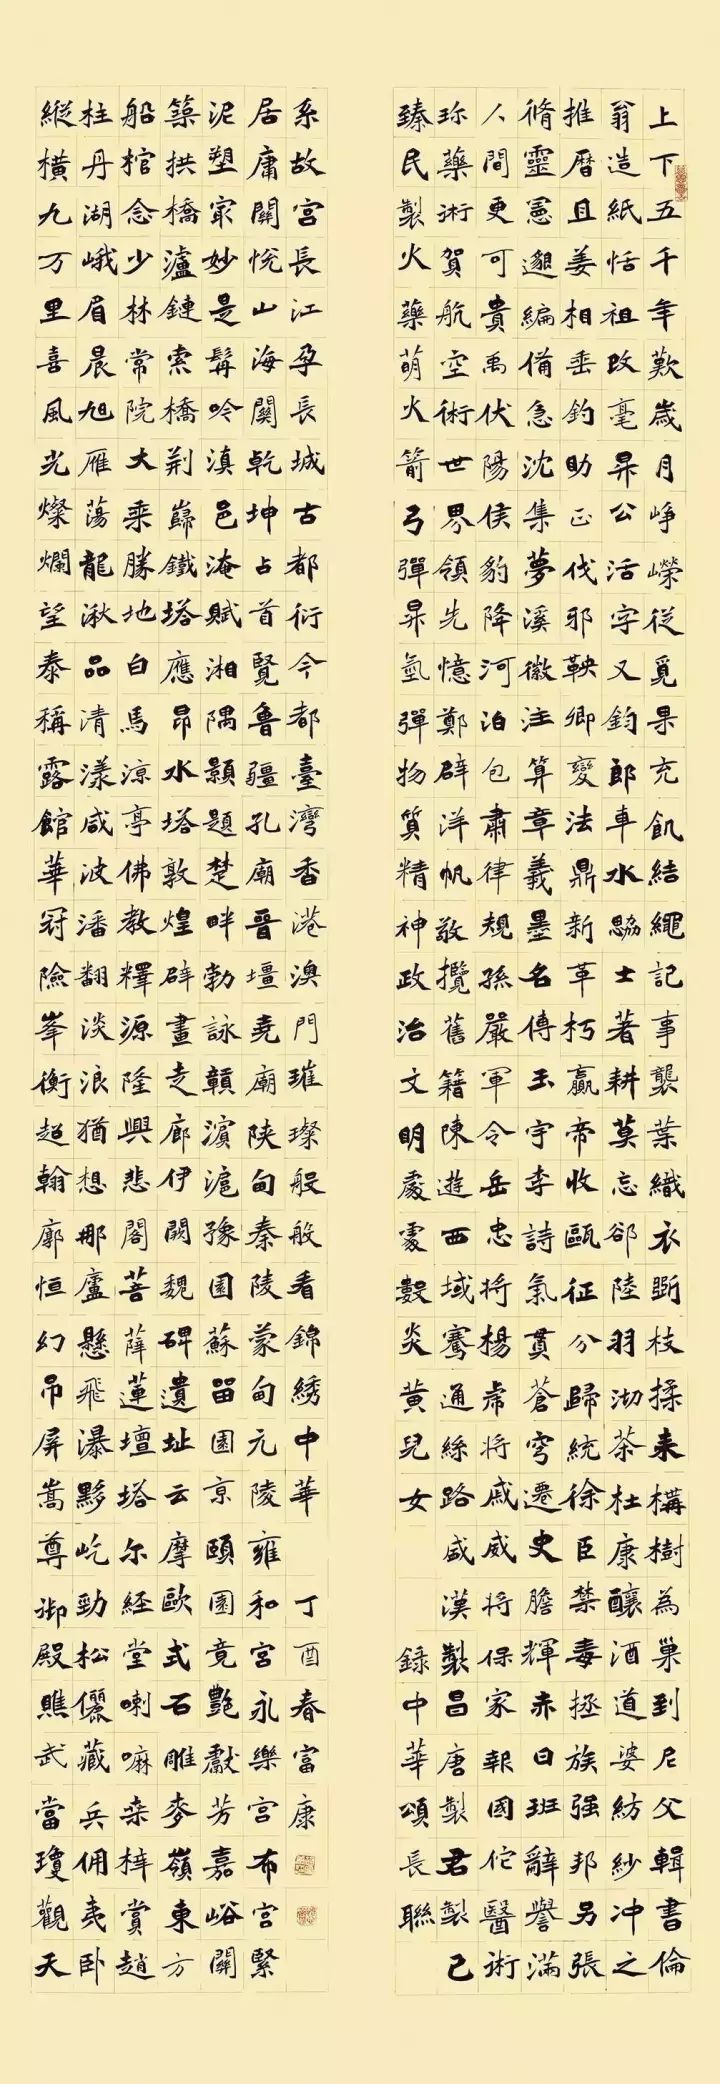 上下五千年歎歲月崢嶸從覓果充飢結繩記事襲葉織衣斷枝揉耒構樹為巢到尼父輯書倫
翁造紙恬祖改毫昇公活字又鈞郎車水勰士著耕莫忘郤陸羽沏茶杜康釀酒道婆紡紗冲之
推曆且姜相垂釣助正伐邪鞅卿變法鼎新革朽嬴帝收甌征分歸統徐臣禁毒拯族强邦另張
脩靈憲邈編備急沈集夢溪徽注算章義墨名傳玉宇李詩氣貫蒼穹遷史膽輝赤日班辭譽滿
人間更可貴禹伏陽侯豹降河泊包肅律規孫嚴軍令岳忠將楊虎將戚威將保家報國佗醫術
珎藥術賀航空術世界領先憶鄭辟洋帆敬攬舊籍陳遊西域騫通絲路咸漢製昌唐製君製己
臻民製火藥萌火箭弓彈昇氫彈物質精神政治文明處處數炎黃兒女
錄中華頌長聯
縱橫九万里喜風光燦爛望泰稱露館華冠險峯衡超翰廓恒幻吊屏嵩尊御殿瞧武當瓊觀天
柱丹湖峨眉晨旭雁蕩龍湫品清漾咸波潘翻淡浪猶想那廬懸飛瀑黟屹勁松儷藏兵佣夷卧
船棺念少林常院大乘勝地白馬涼亭佛教釋源隆興悲閣菩薩蓮壇塔尔經堂喇嘛桒梓賞趙
築拱橋瀘鏈索橋荆巋鐵塔應昂水塔敦煌辟畫走廊伊闕魏碑遺址云摩歐式石雕麥嶺東方
泥塑冣妙是髯吟滇邑淹賦湘隅顥題楚畔勃詠贛濱滬豫園蘇留園京頤園竟艷獻芳嘉峪關
居庸關悅山海關乾坤占首覽魯疆孔廟晉壇堯廟陝甸秦陵蒙甸元陵雍和宮永樂宮布宮緊
系故宮長江孕長城古都衍今都臺灣香港澳門璀璨般般看錦綉中華
丁酉春富康